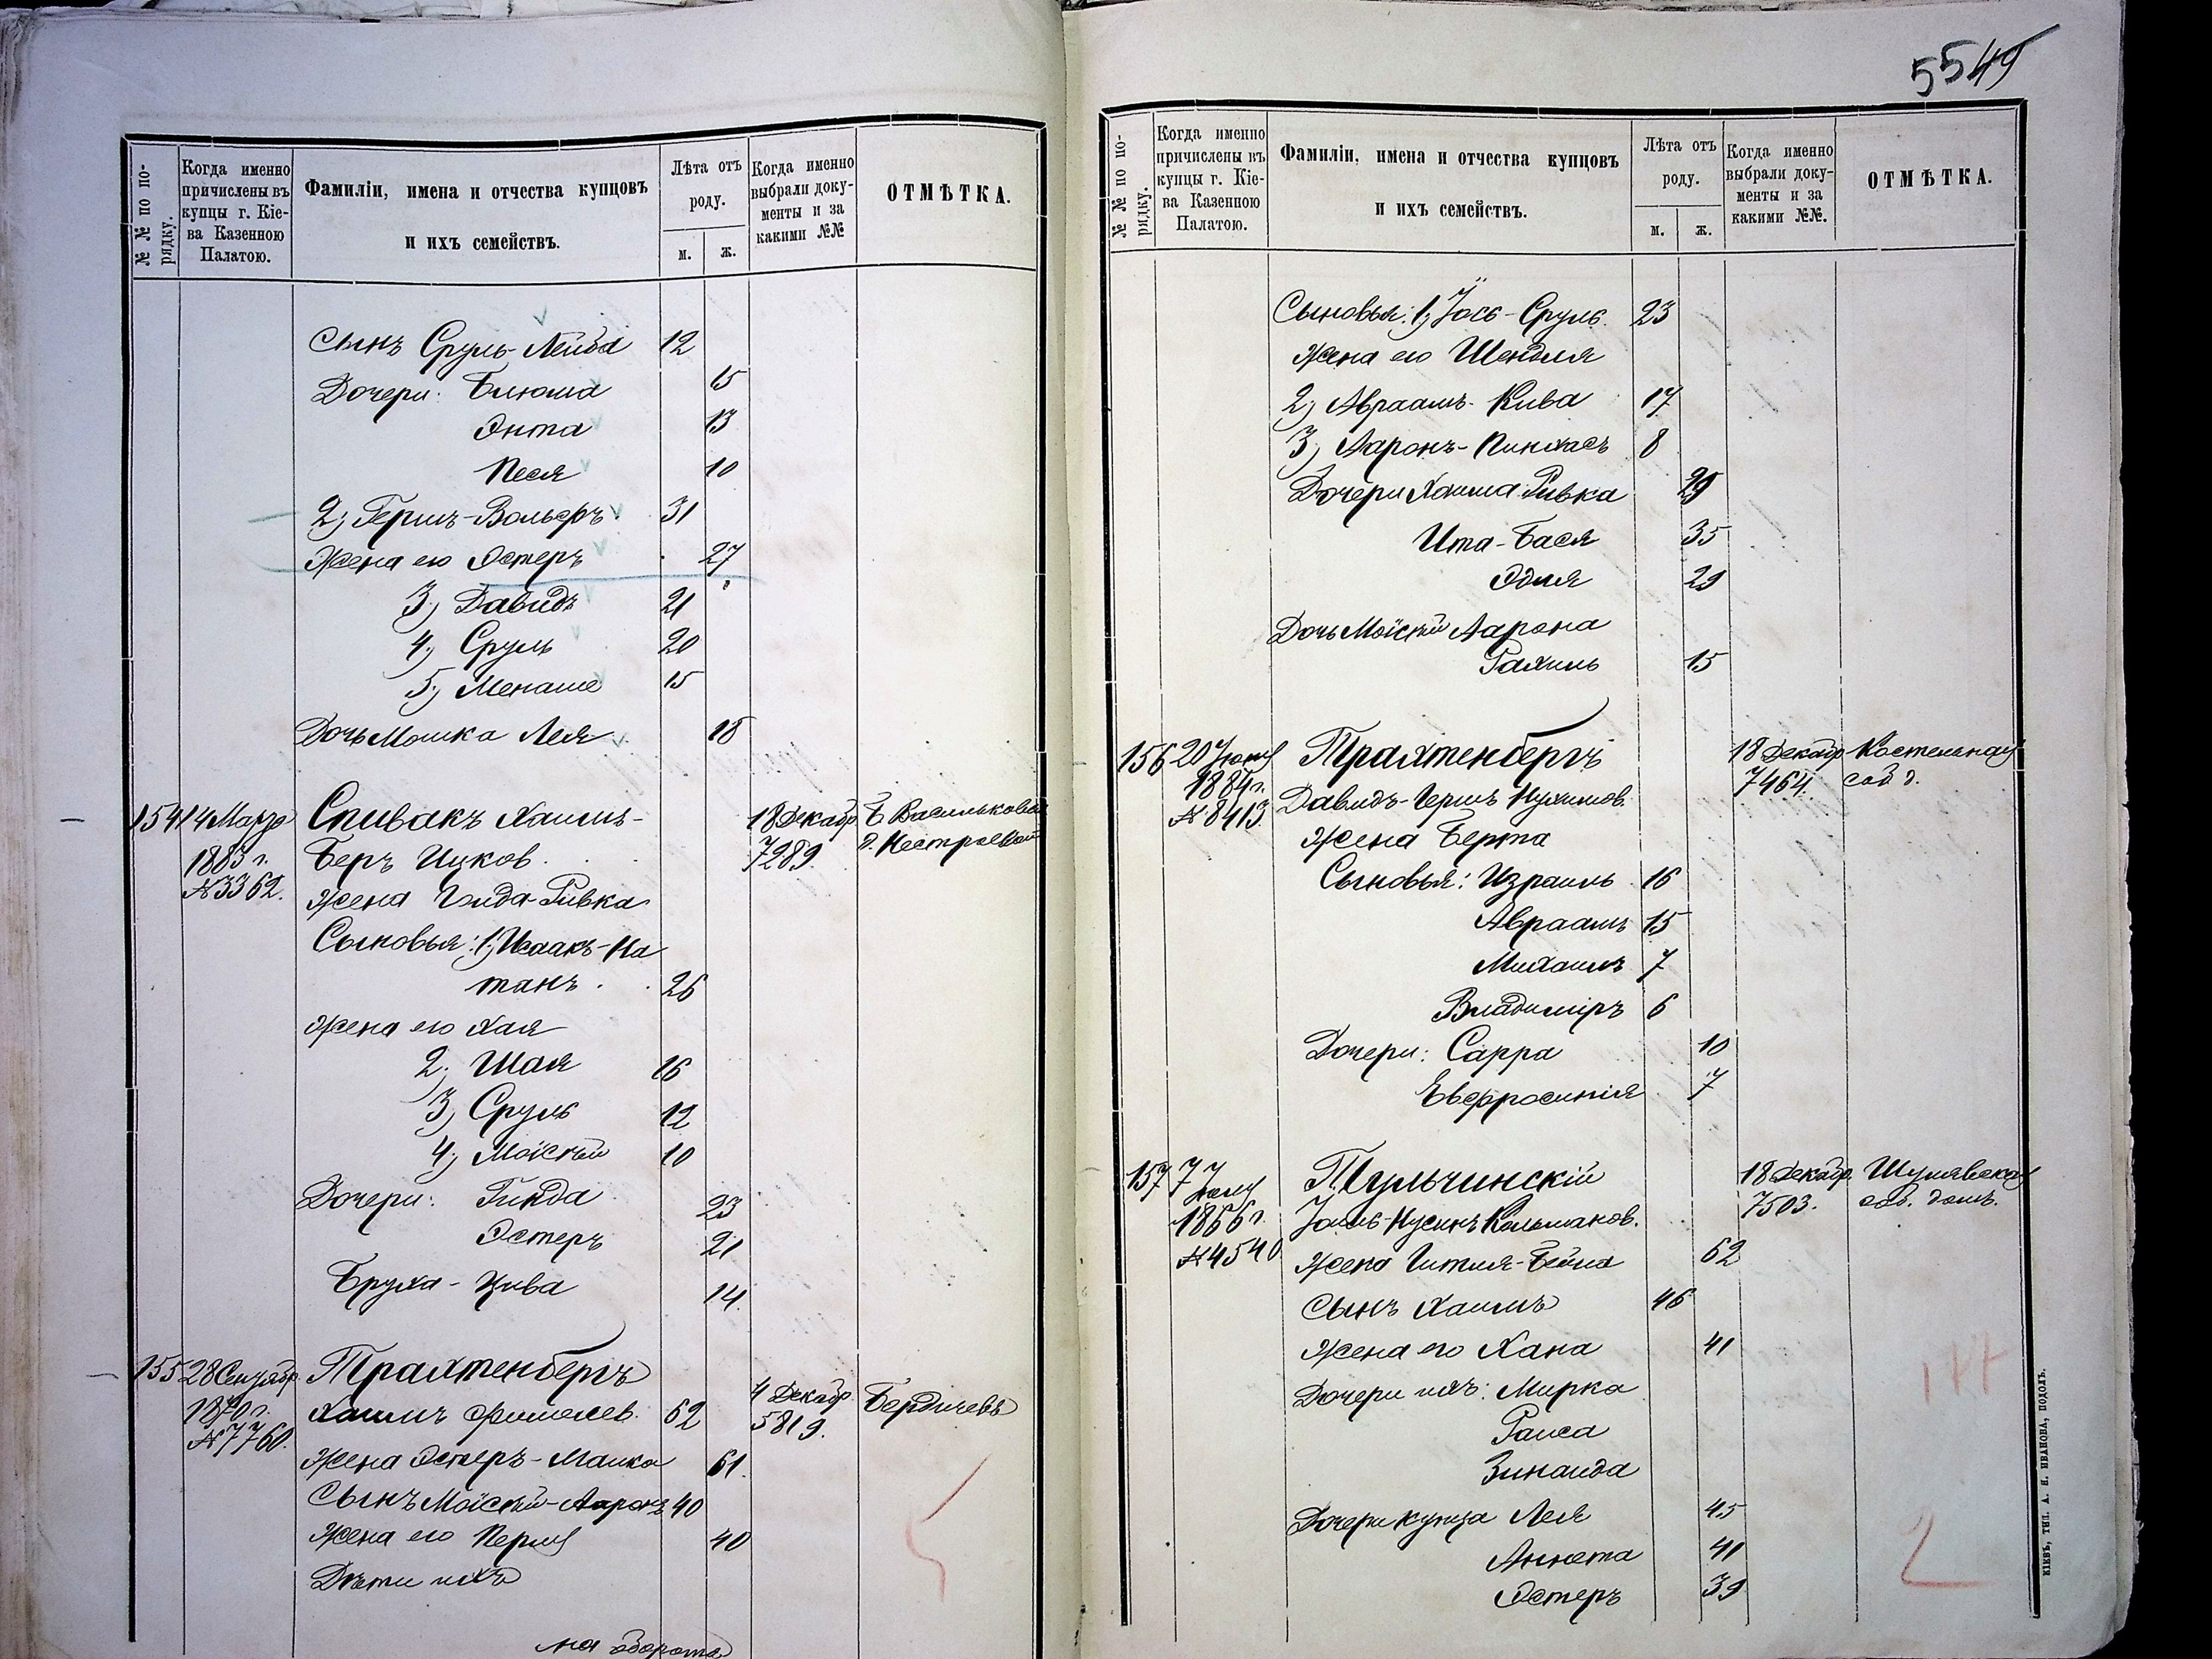 № № по по-
рядку.
Когда именно
причислены въ
купцы г. Кіе-
ва Казенною
Палатою.
Фамиліи, имена и отчества купцовъ
и ихъ семействъ.
Лѣта отъ
роду.
м.
ж.
Когда именно
выбрали доку-
менты и за
какими №№
ОТМѢТКА.
Сынъ Сруль-Лейба 12
Дочери: Блюма 15
Энта 13
Песя 10
2, Гершъ-Вольфъ 31
Жена его Эстеръ 27
3, Давидъ 21
4, Сруль 20
5, Менаше 15
Дочь Мошка Лея 18
154 14 Марта Спивакъ Хаимъ- 18 Декабр. Б Васильковск
1883 г. Беръ Ицков. 7289.
№3362. Жена Голда-Ривка
Сыновья: 1, Исаакъ-На
танъ 26
Жена его Хая
2, Шая 16
3, Сруль 12
4, Моисѣй 10
Дочери: Гинда 23
Эстеръ 21
Бруха-Цива 14.
155 28 Сентябр Трахтенбергъ
1870 г. Хаимъ Фишелев. 62 4 Декабр. Бердичевъ
№7760. 5819.
Жена Эстеръ-Малка 61.
Сынъ Моисѣй-Ааронъ 40
Жена его Перля 40
Дѣти ихъ
на оборотѣ
5549
№ № по по-
рядку.
Когда именно
причислены въ
купцы г. Кіе-
ва Казенною
Палатою.
Фамиліи, имена и отчества купцовъ
и ихъ семействъ.
Лѣта отъ
роду.
м.
ж.
Когда именно
выбрали доку-
менты и за
какими №№.
ОТМѢТКА.
Сыновья: 1, Іось-Сруль 23
Жена его Шендля
2, Авраамъ-Кива 17
3, Ааронъ-Пинхасъ 8
Дочери Хаима: Ривка 29
Ита-Бася 35
Эдля 29
Дочь Моисѣй Аарона
Рахиль 15
156 20 Іюня Трахтенбергъ 18 Декабр Костельная
1884 г. Давидъ-Гершъ Нухимов. 7464. соб д.
№8413. Жена Берта
Сыновья: Израиль 16
Авраамъ 15
Михаилъ 7
Владиміръ 6
Дочери: Сарра 10
Евфросинія 7
157 7 Тульчинскій 18 Декабр. Шулявская
1866 г. Іоиль-Нусинъ Кальманов. 7503. соб. домъ.
№4540 Жена Гитля-Бейла 62
Сынъ Хаимъ 46
Жена его Хана 41
Дочери ихъ: Мирка
Раиса
Зинаида
Дочери купца Лея 45
Аннета 41
Эстеръ 39
2
КІЕВЪ, ТИП. А. Н. ИВАНОВА, ПОДОЛЪ.